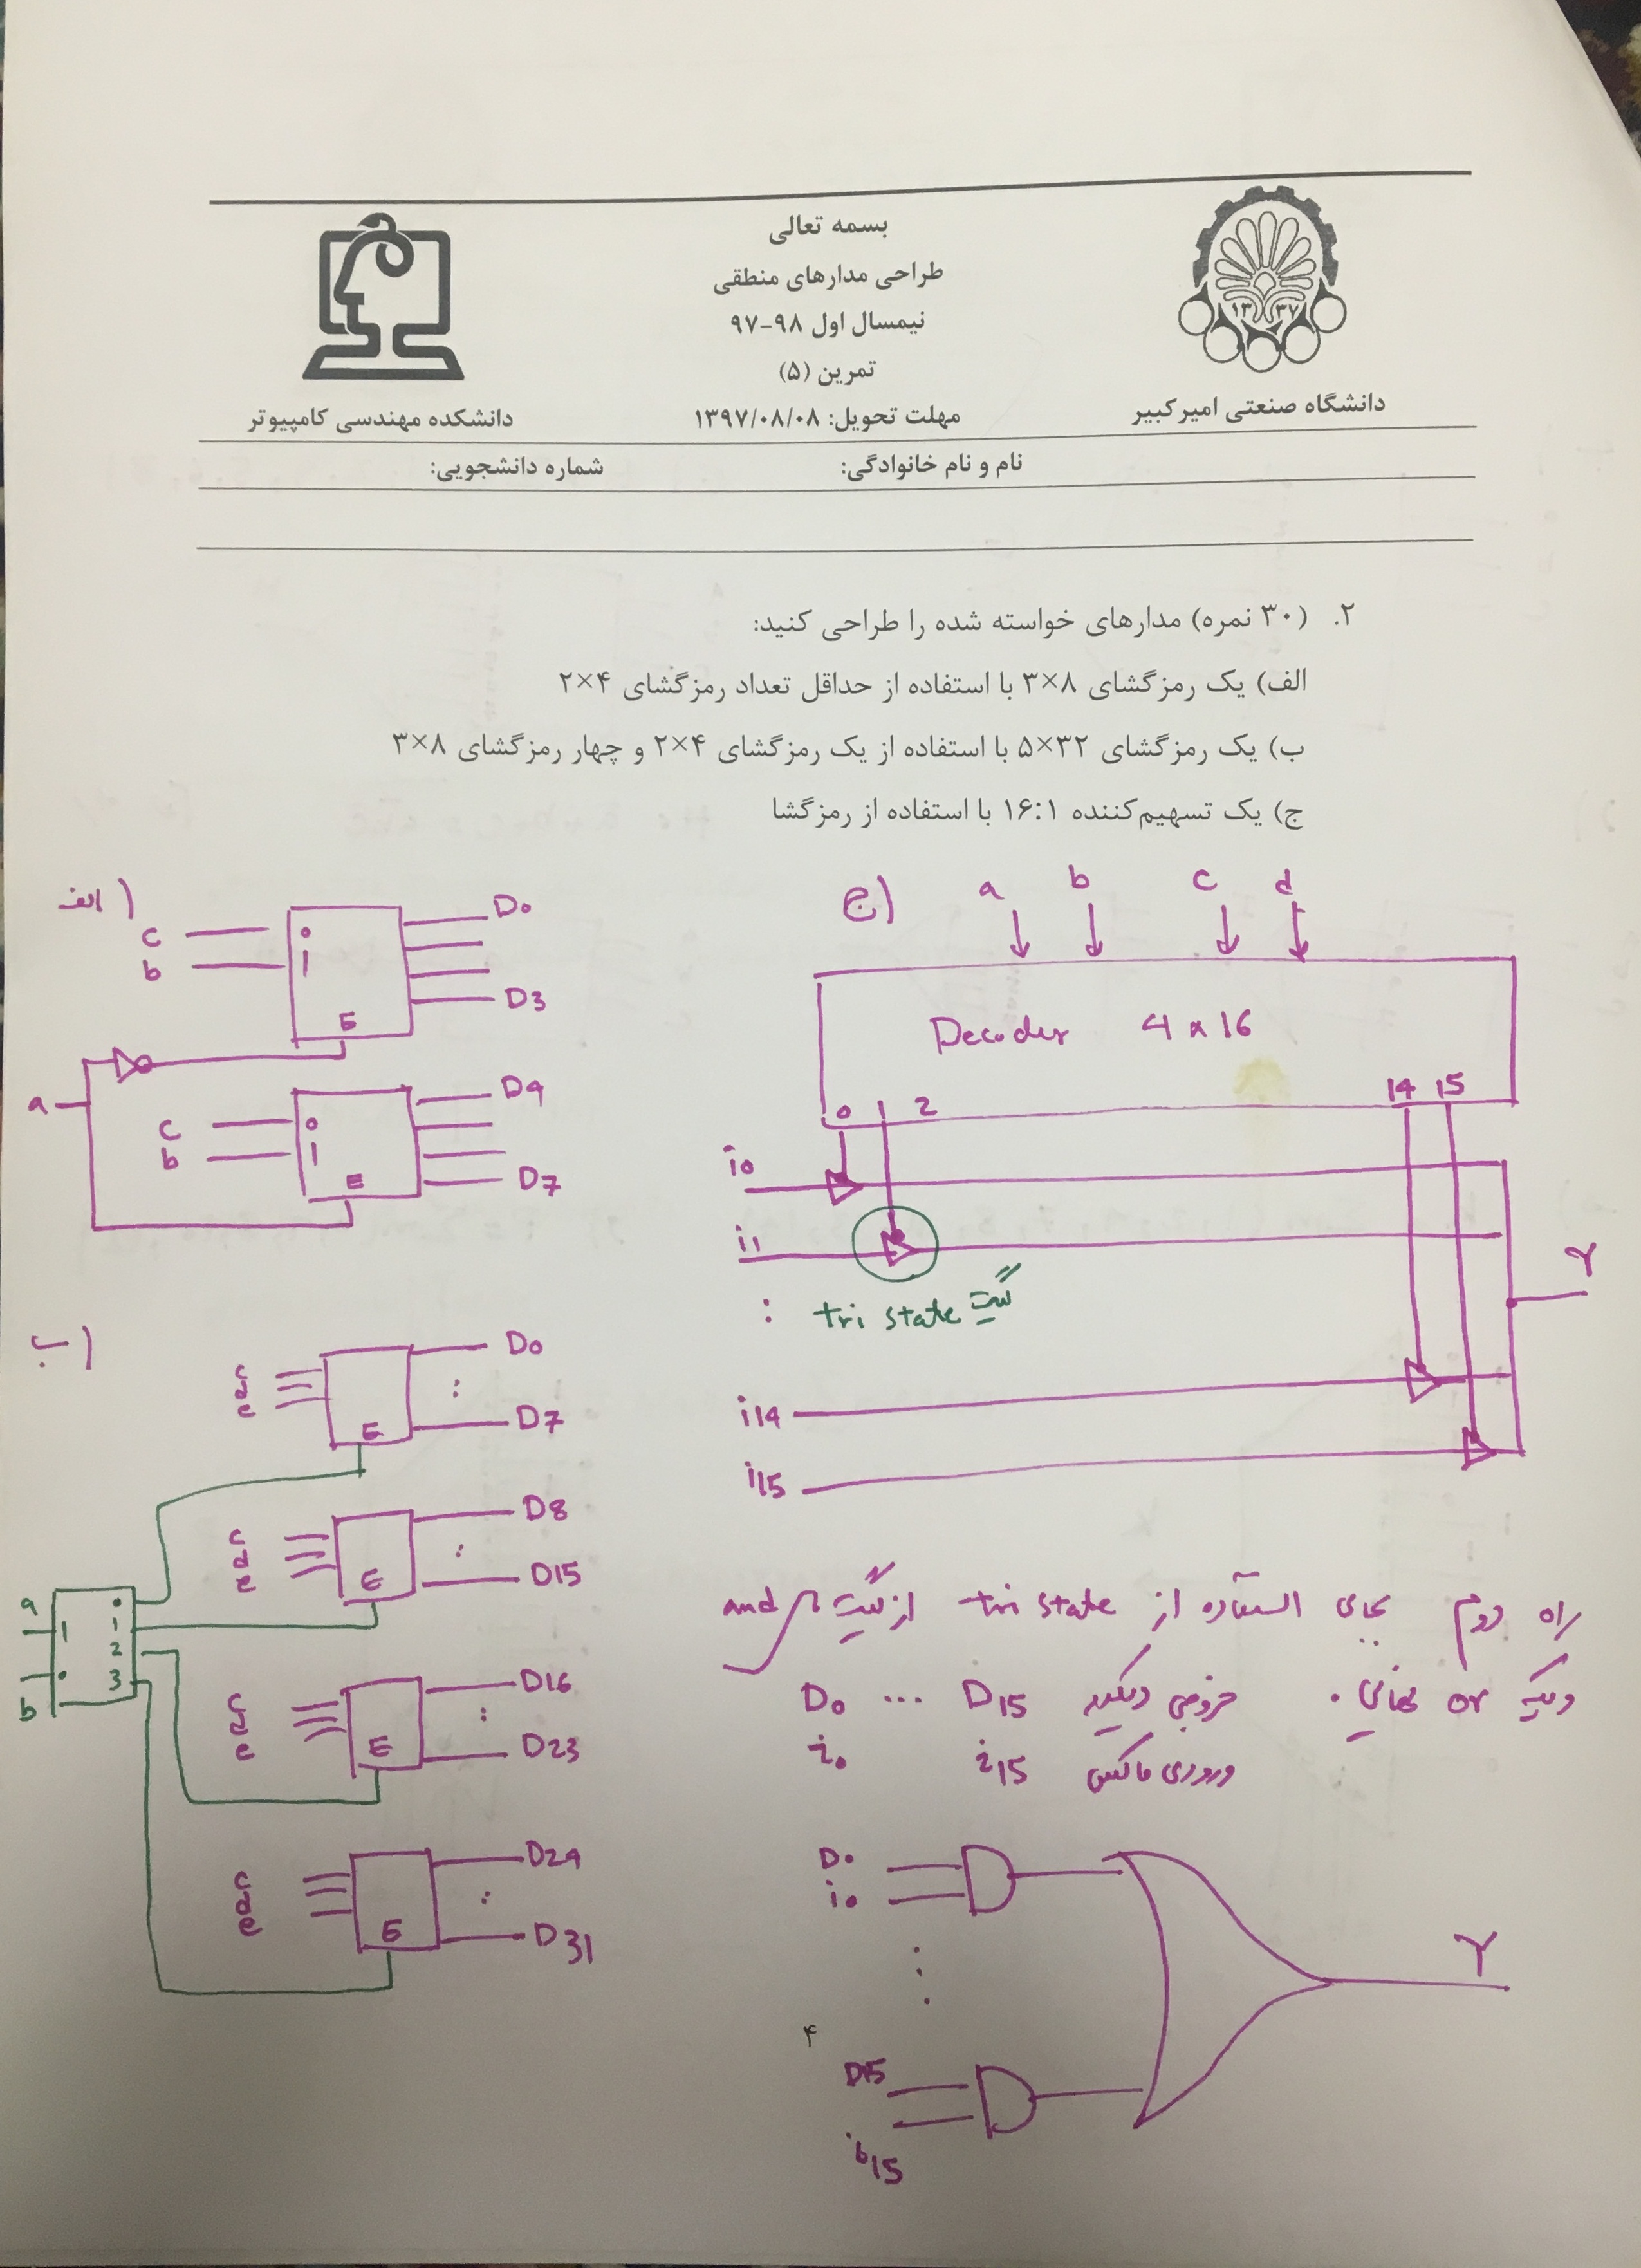 بسمه تعالی
طراحی مدارهای منطقی
نیمسال اول ۹۸-۹۷
تمرین (۵)
مهلت تحویل: ۱۳۹۷/۰۸/۰۸
۱۳ ۳۷
دانشگاه صنعتی امیرکبیر
دانشکده مهندسی کامپیوتر
نام و نام خانوادگی: شماره دانشجویی:
۲. (۳۰ نمره) مدارهای خواسته شده را طراحی کنید:
الف) یک رمزگشای ۸×۳ با استفاده از حداقل تعداد رمزگشای ۴×۲
ب) یک رمزگشای ۳۲×۵ با استفاده از یک رمزگشای ۴×۲ و چهار رمزگشای ۸×۳
ج) یک تسهیم‌کننده ۱۶:۱ با استفاده از رمزگشا
الف)
c 0 D0
b 1
E D3
a
c 0 D4
b 1
E D7
ب)
c d e E D0 : D7
c d e E D8 : D15
a 1 0
1
2
b 0 3
c d e E D16 : D23
c d e E D24 : D31
ج)
a b c d
Decoder 4x16
0 1 2 14 15
i0
i1
Y
: tri state گیت
i14
i15
راه دوم بجای استفاده از tri state از گیت and
و یک or نهایی.
خروجی دیکدر D0 ... D15
ورودی ماکس i0 i15
D0
i0
Y
D15
i15
۴